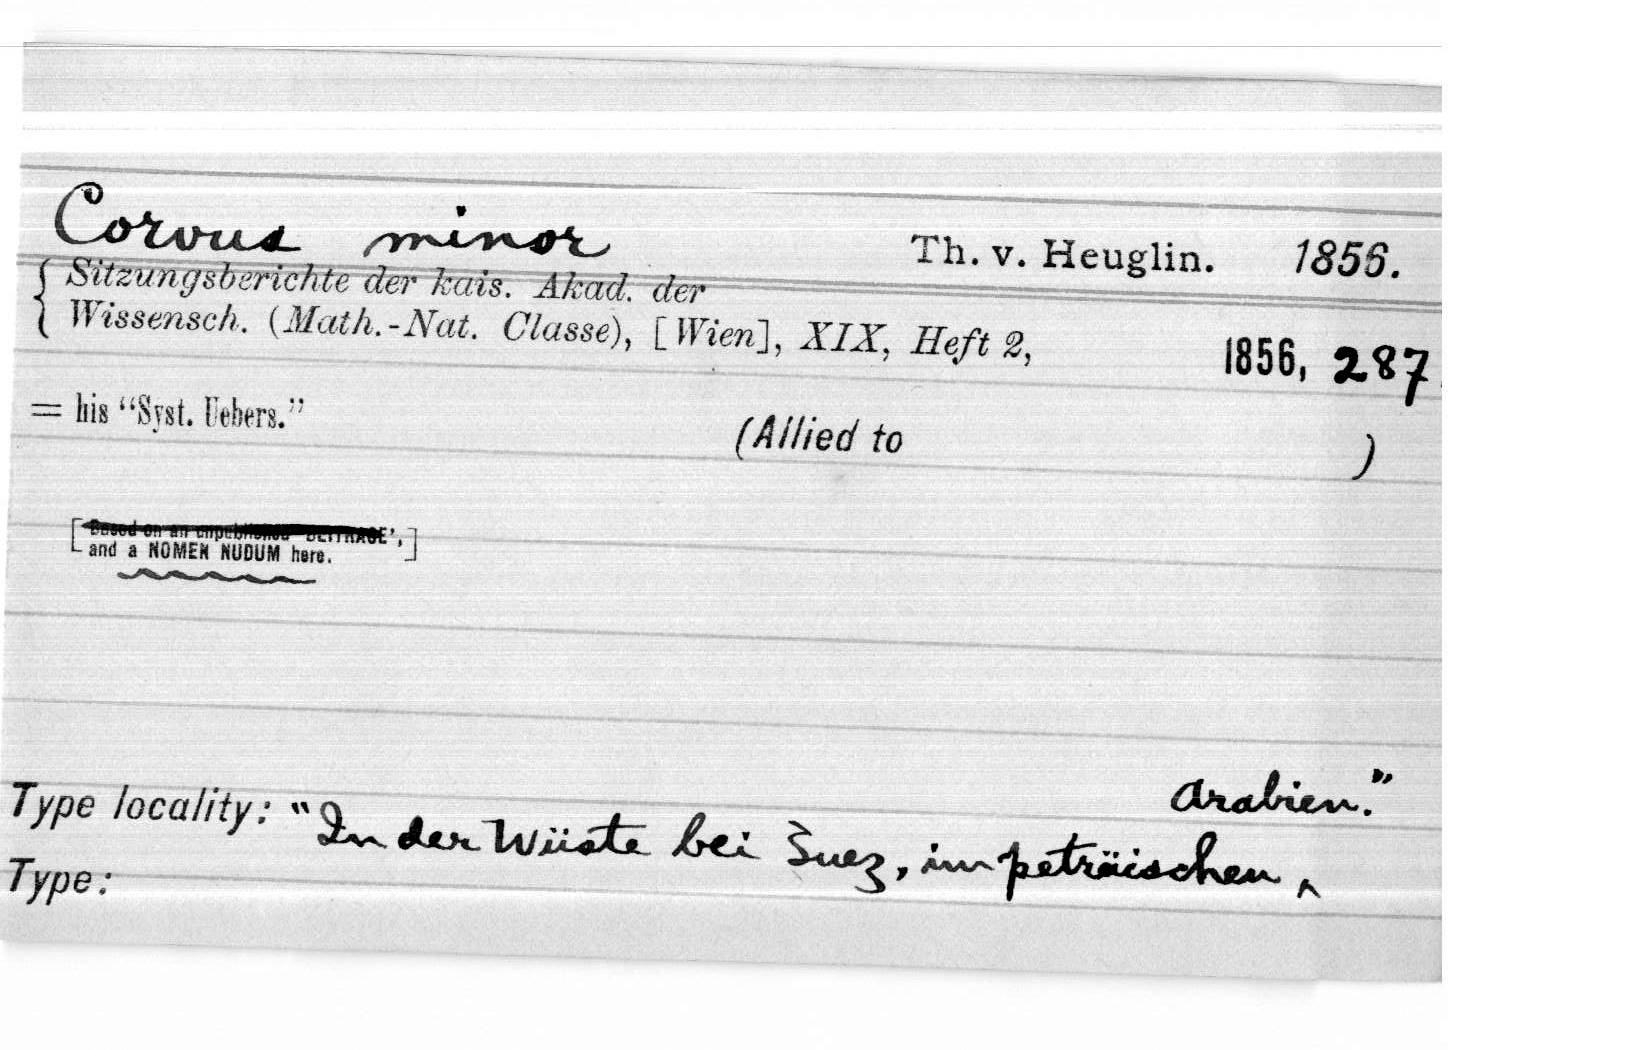 Corvus minor Th. v. Heuglin. 1856.
Sitzungsberichte der kais. Akad. der
Wissensch. (Math.-Nat. Classe), [Wien], XIX, Heft 2, 1856, 287.
= his “Syst. Uebers.”
(Allied to )
[Based on an unpublished 'BEITRAGE',
and a NOMEN NUDUM here.]
Arabien.”
Type locality: “In der Wüste bei Suez, im peträischen ^
Type: